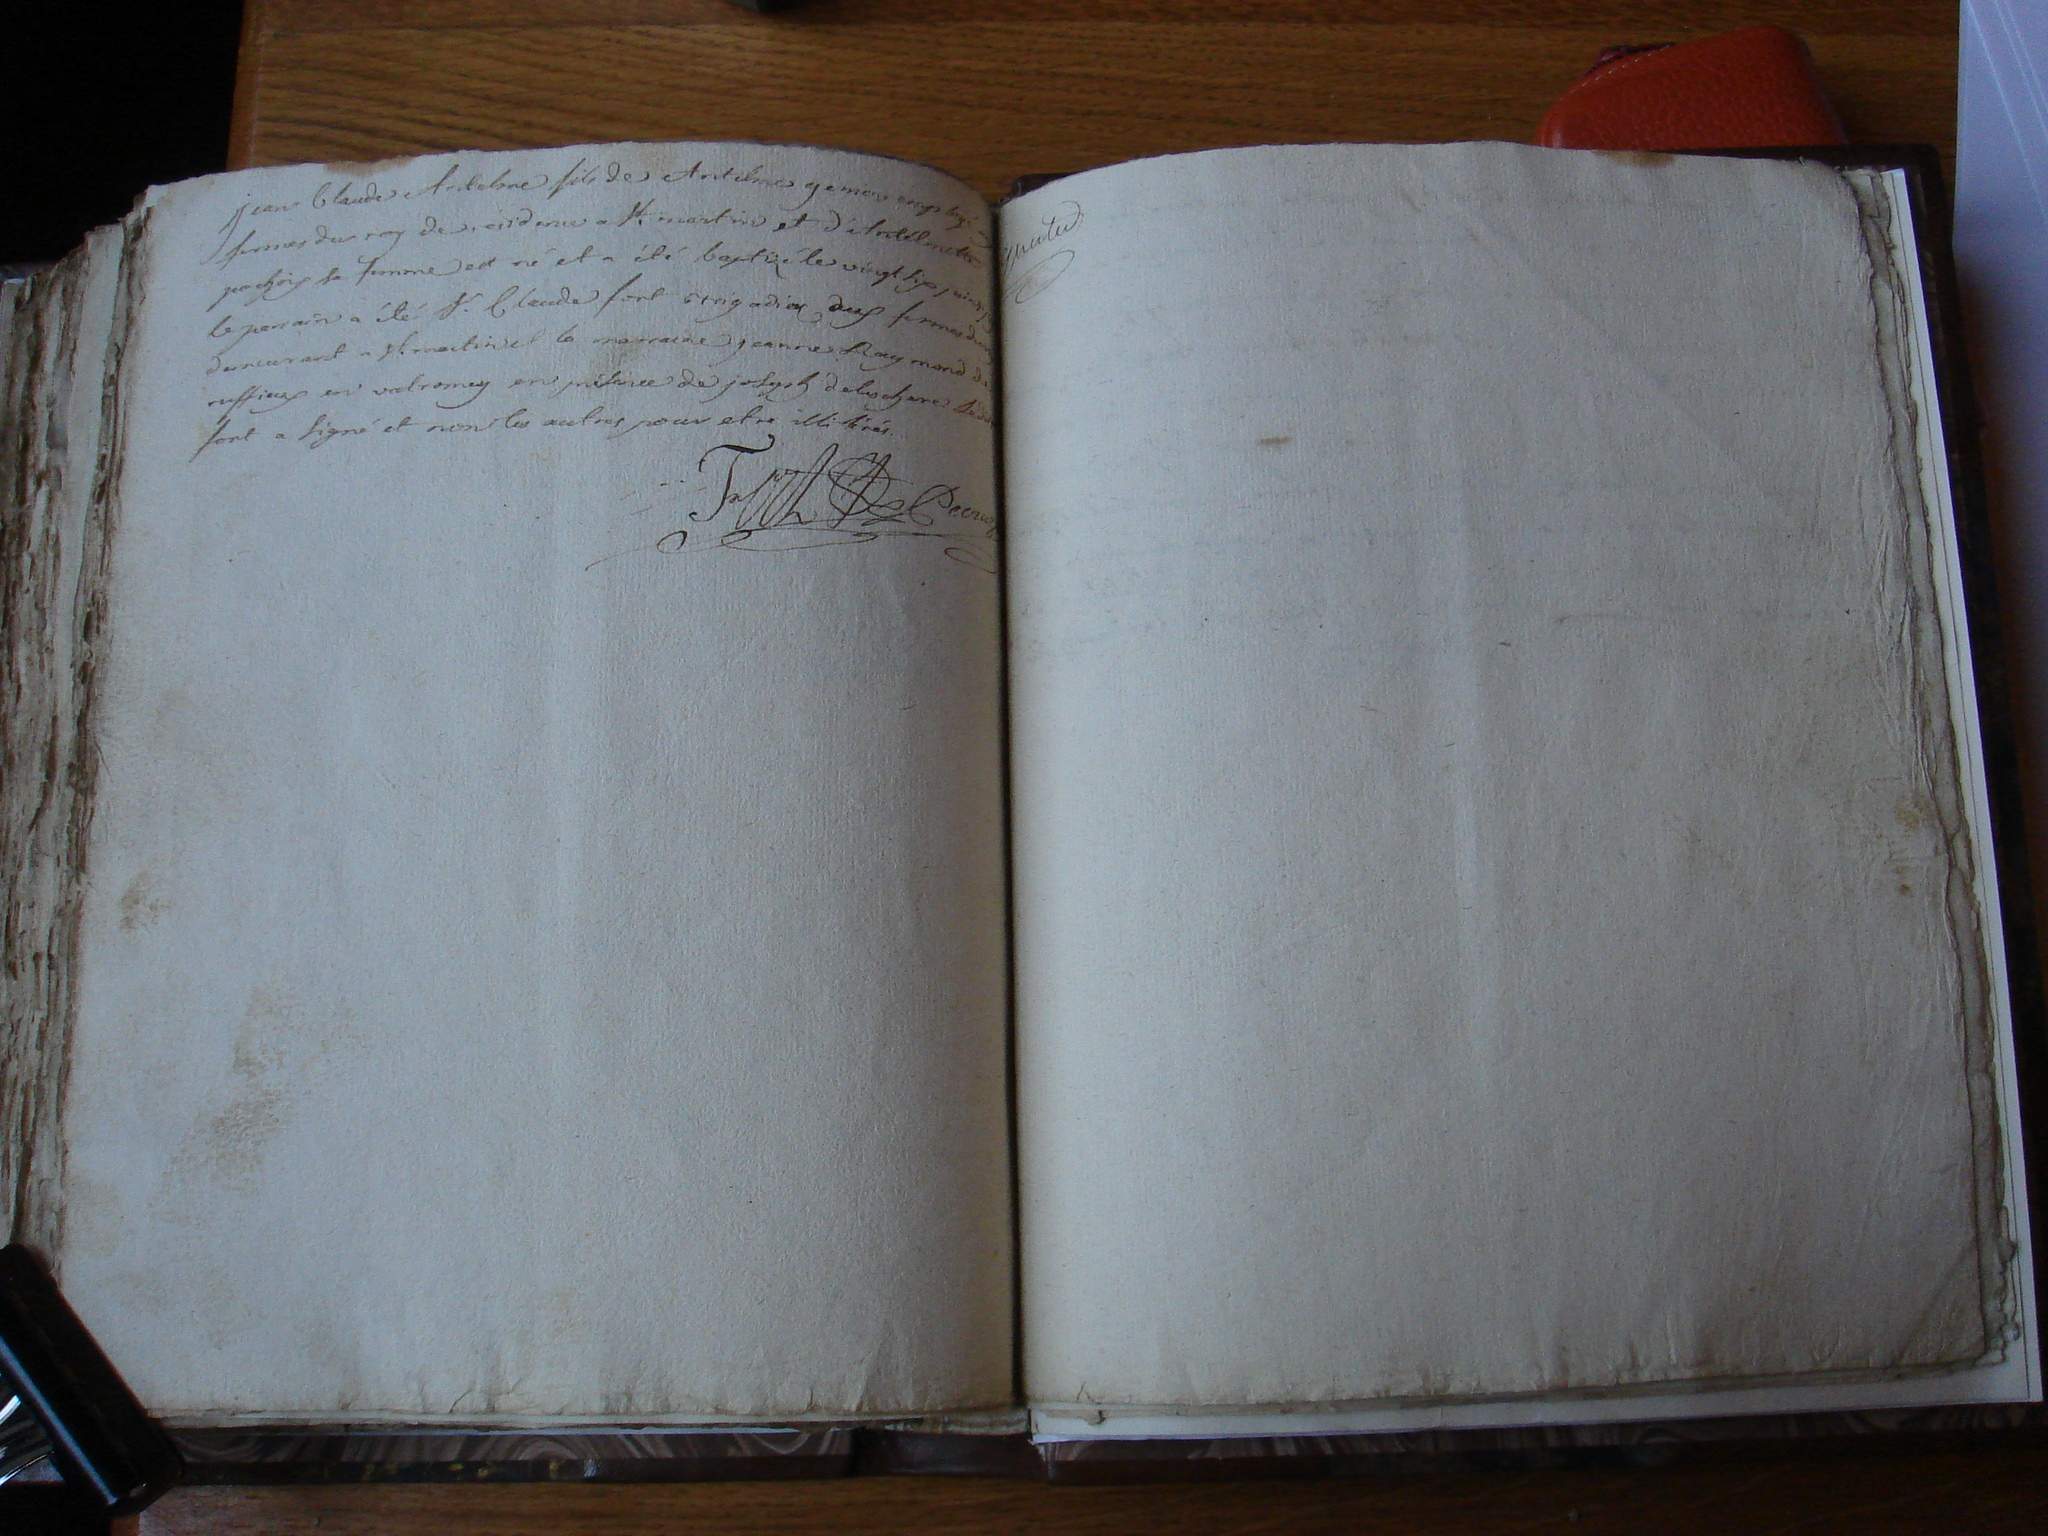 jean Claude Antelme fils de Antelme gemon employé
fermes du roy de residence a St. martin et d'Antelmette
pochoix sa femme est né et a été baptizé le vingt six juin
le parrain a été Sr. Claude fort brigadier des fermes du
demeurant a St. martin et la marraine jeanne Raymond de
ruffieux en valromey en présence de joseph
fort a signé et non les autres pour etre illitérés.